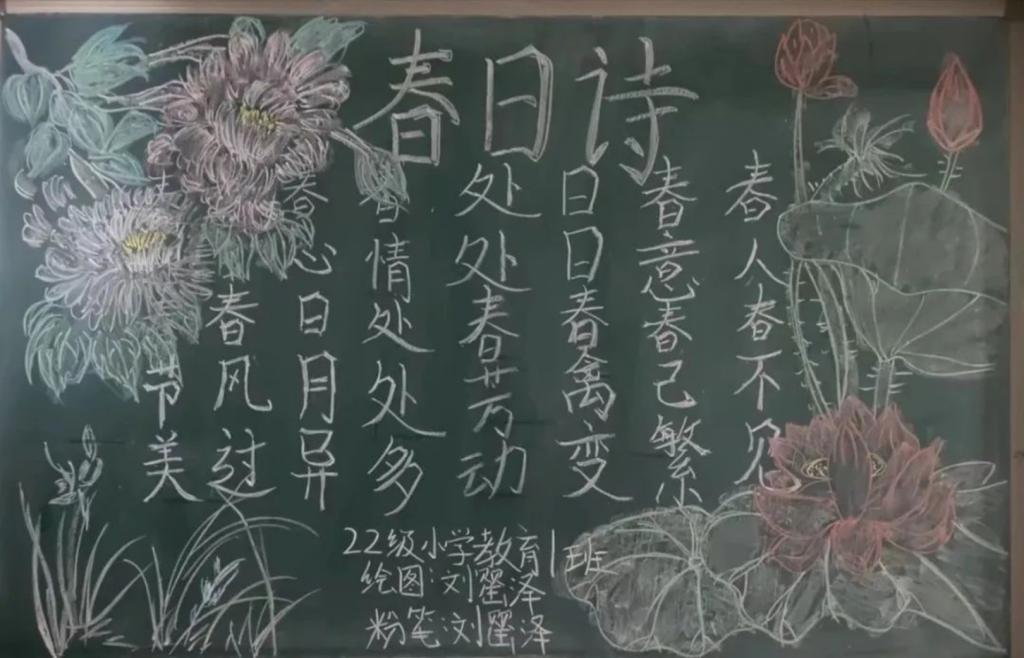 春日诗
春人春不见
春意春己繁
日日春禽变
处处春芳动
春情处处多
春心日月异
春风过
节美
22级小学教育1班
绘图:刘墨泽
粉笔:刘墨泽